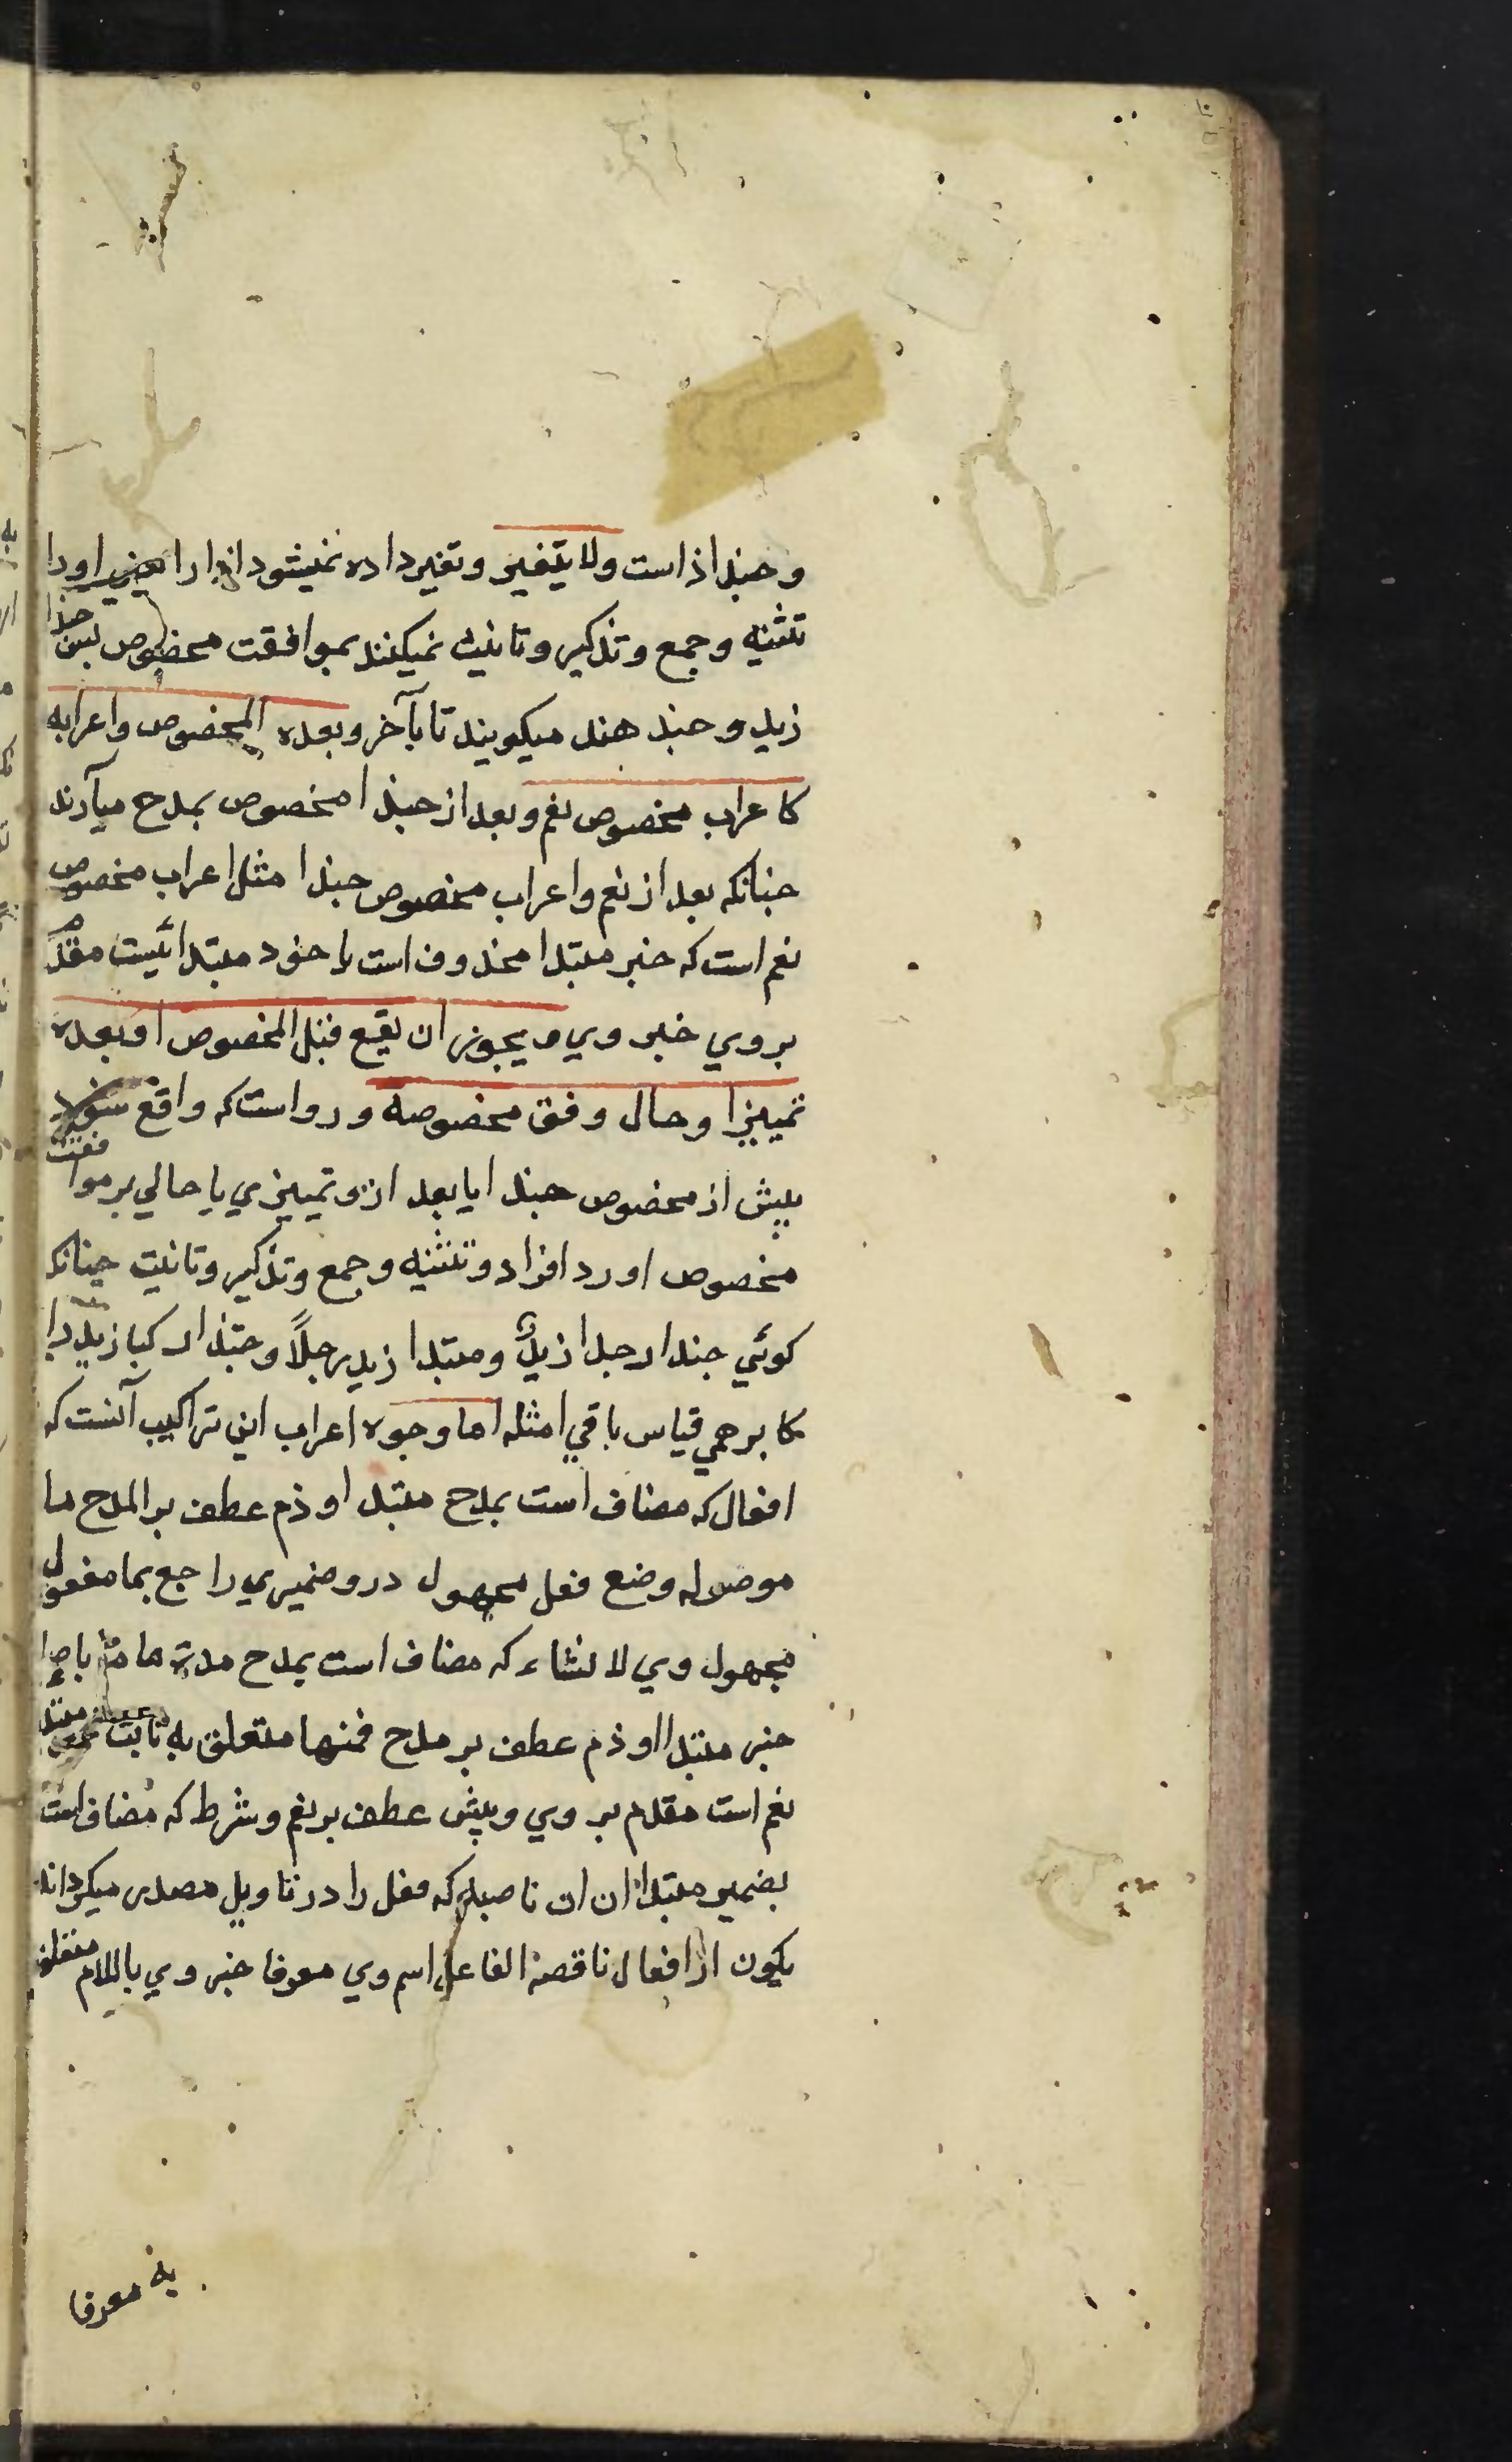 و حبذا ذا است ولا يتغير و تغير داده نميشود اذا را يعني او را
تثنيه و جمع و تذكير و تانيث نميكنند بموافقت مخصوص پس حبذا
زيد و حبذ هند ميكويند تا بآخر و بعده المخصوص واعرابه
كاعراب مخصوص نعم و بعد از حبذا مخصوص بمدح ميآرند
چنانكه بعد از نعم و اعراب مخصوص حبذا مثل اعراب مخصوص
نعم است كه خبر مبتدا محذوف است يا خود مبتدائيست مقدم
بروي خبر وي و يجوز ان يقع قبل المخصوص او بعده
تمييزا و حال وفق مخصوصه و رواست كه واقع شود
پيش از مخصوص حبذا يا بعد ازو تمييزي يا حالي بر موافقت
مخصوص او رد افراد و تثنيه و جمع و تذكير و تانيت چنانكه
كوئي حبذا رجلا زيدٌ و مبتدا زيد رجلاً و حبّذا راكبا زيد را
كا برهمي قياس باقي امثله اما وجوه اعراب اين تراكيب آنست كه
افعال كه مضاف است بمدح مبتدا و ذم عطف بر المدح ما
موصوله وضع فعل مجهول درو ضميري راجع بما مفعول
مجهول وي لانشاء كه مضاف است بمدح مدة ما
خبر مبتدا او ذم عطف بر مدح فمنها متعلق به ثابت
نعم است مقدم بر وي و بئس عطف بر نعم و شرط كه مضاف است
بضمير مبتدا ان ان ناصبه كه فعل را در تاويل مصدر ميكرداند
يكون از افعال ناقصه الفاعل اسم وي معرفا خبر وي باللام متعلق
به معرفا